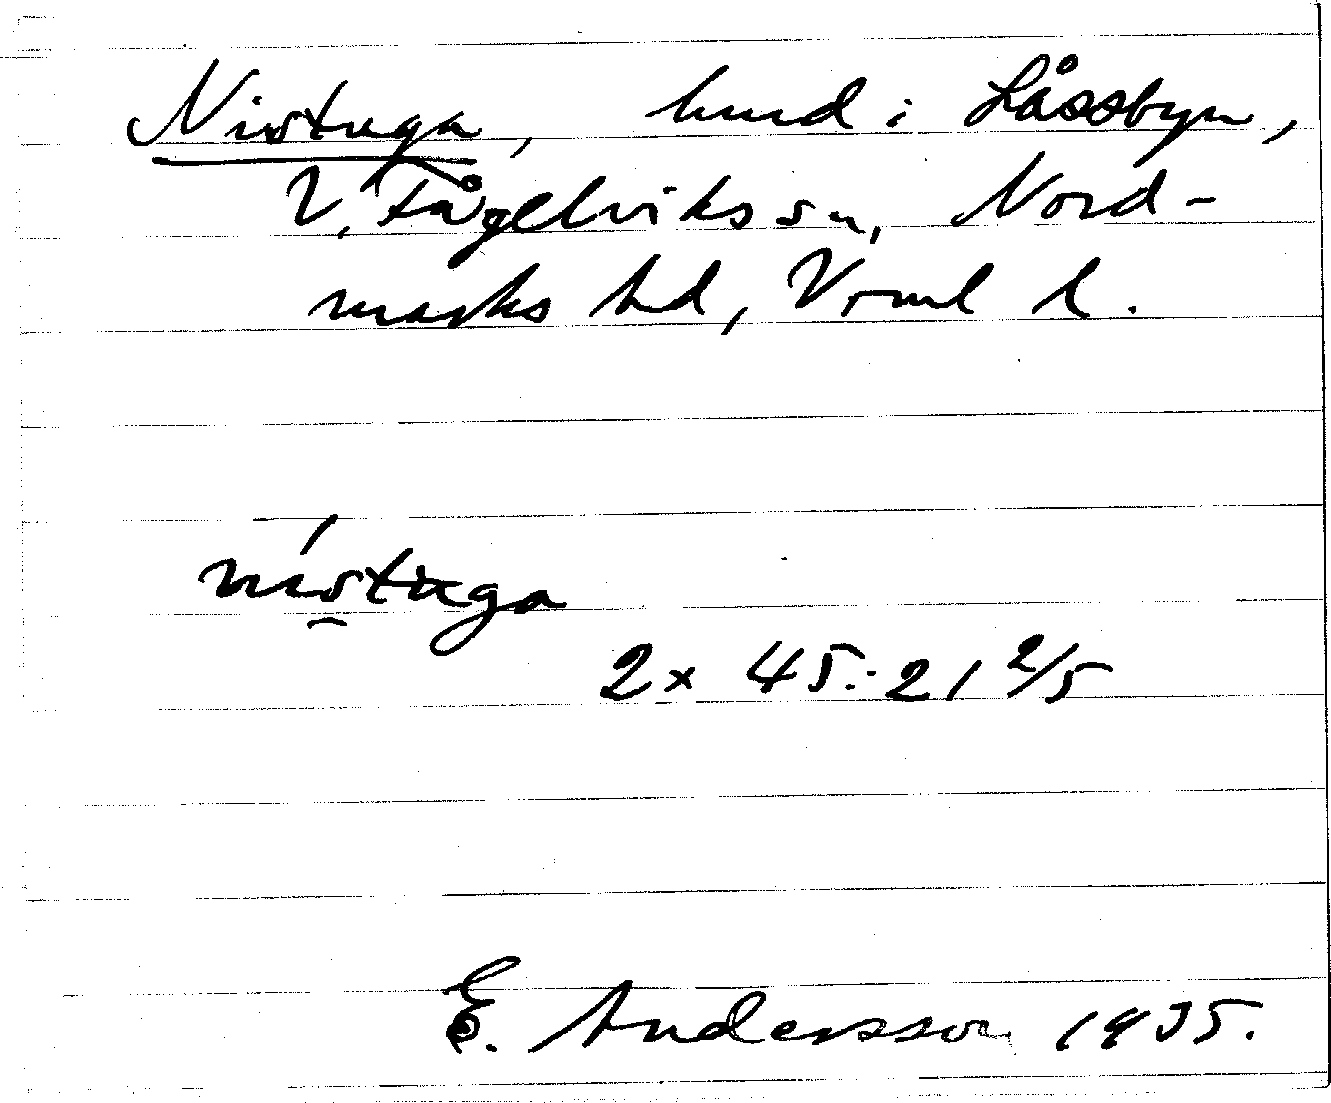 Nistuga, hmd i Låssbyn,
V. Fågelviks sn, Nord-
marks hd, Vrml l.
nístuga
2x 45:21 2/5
E. Andersson 1935.